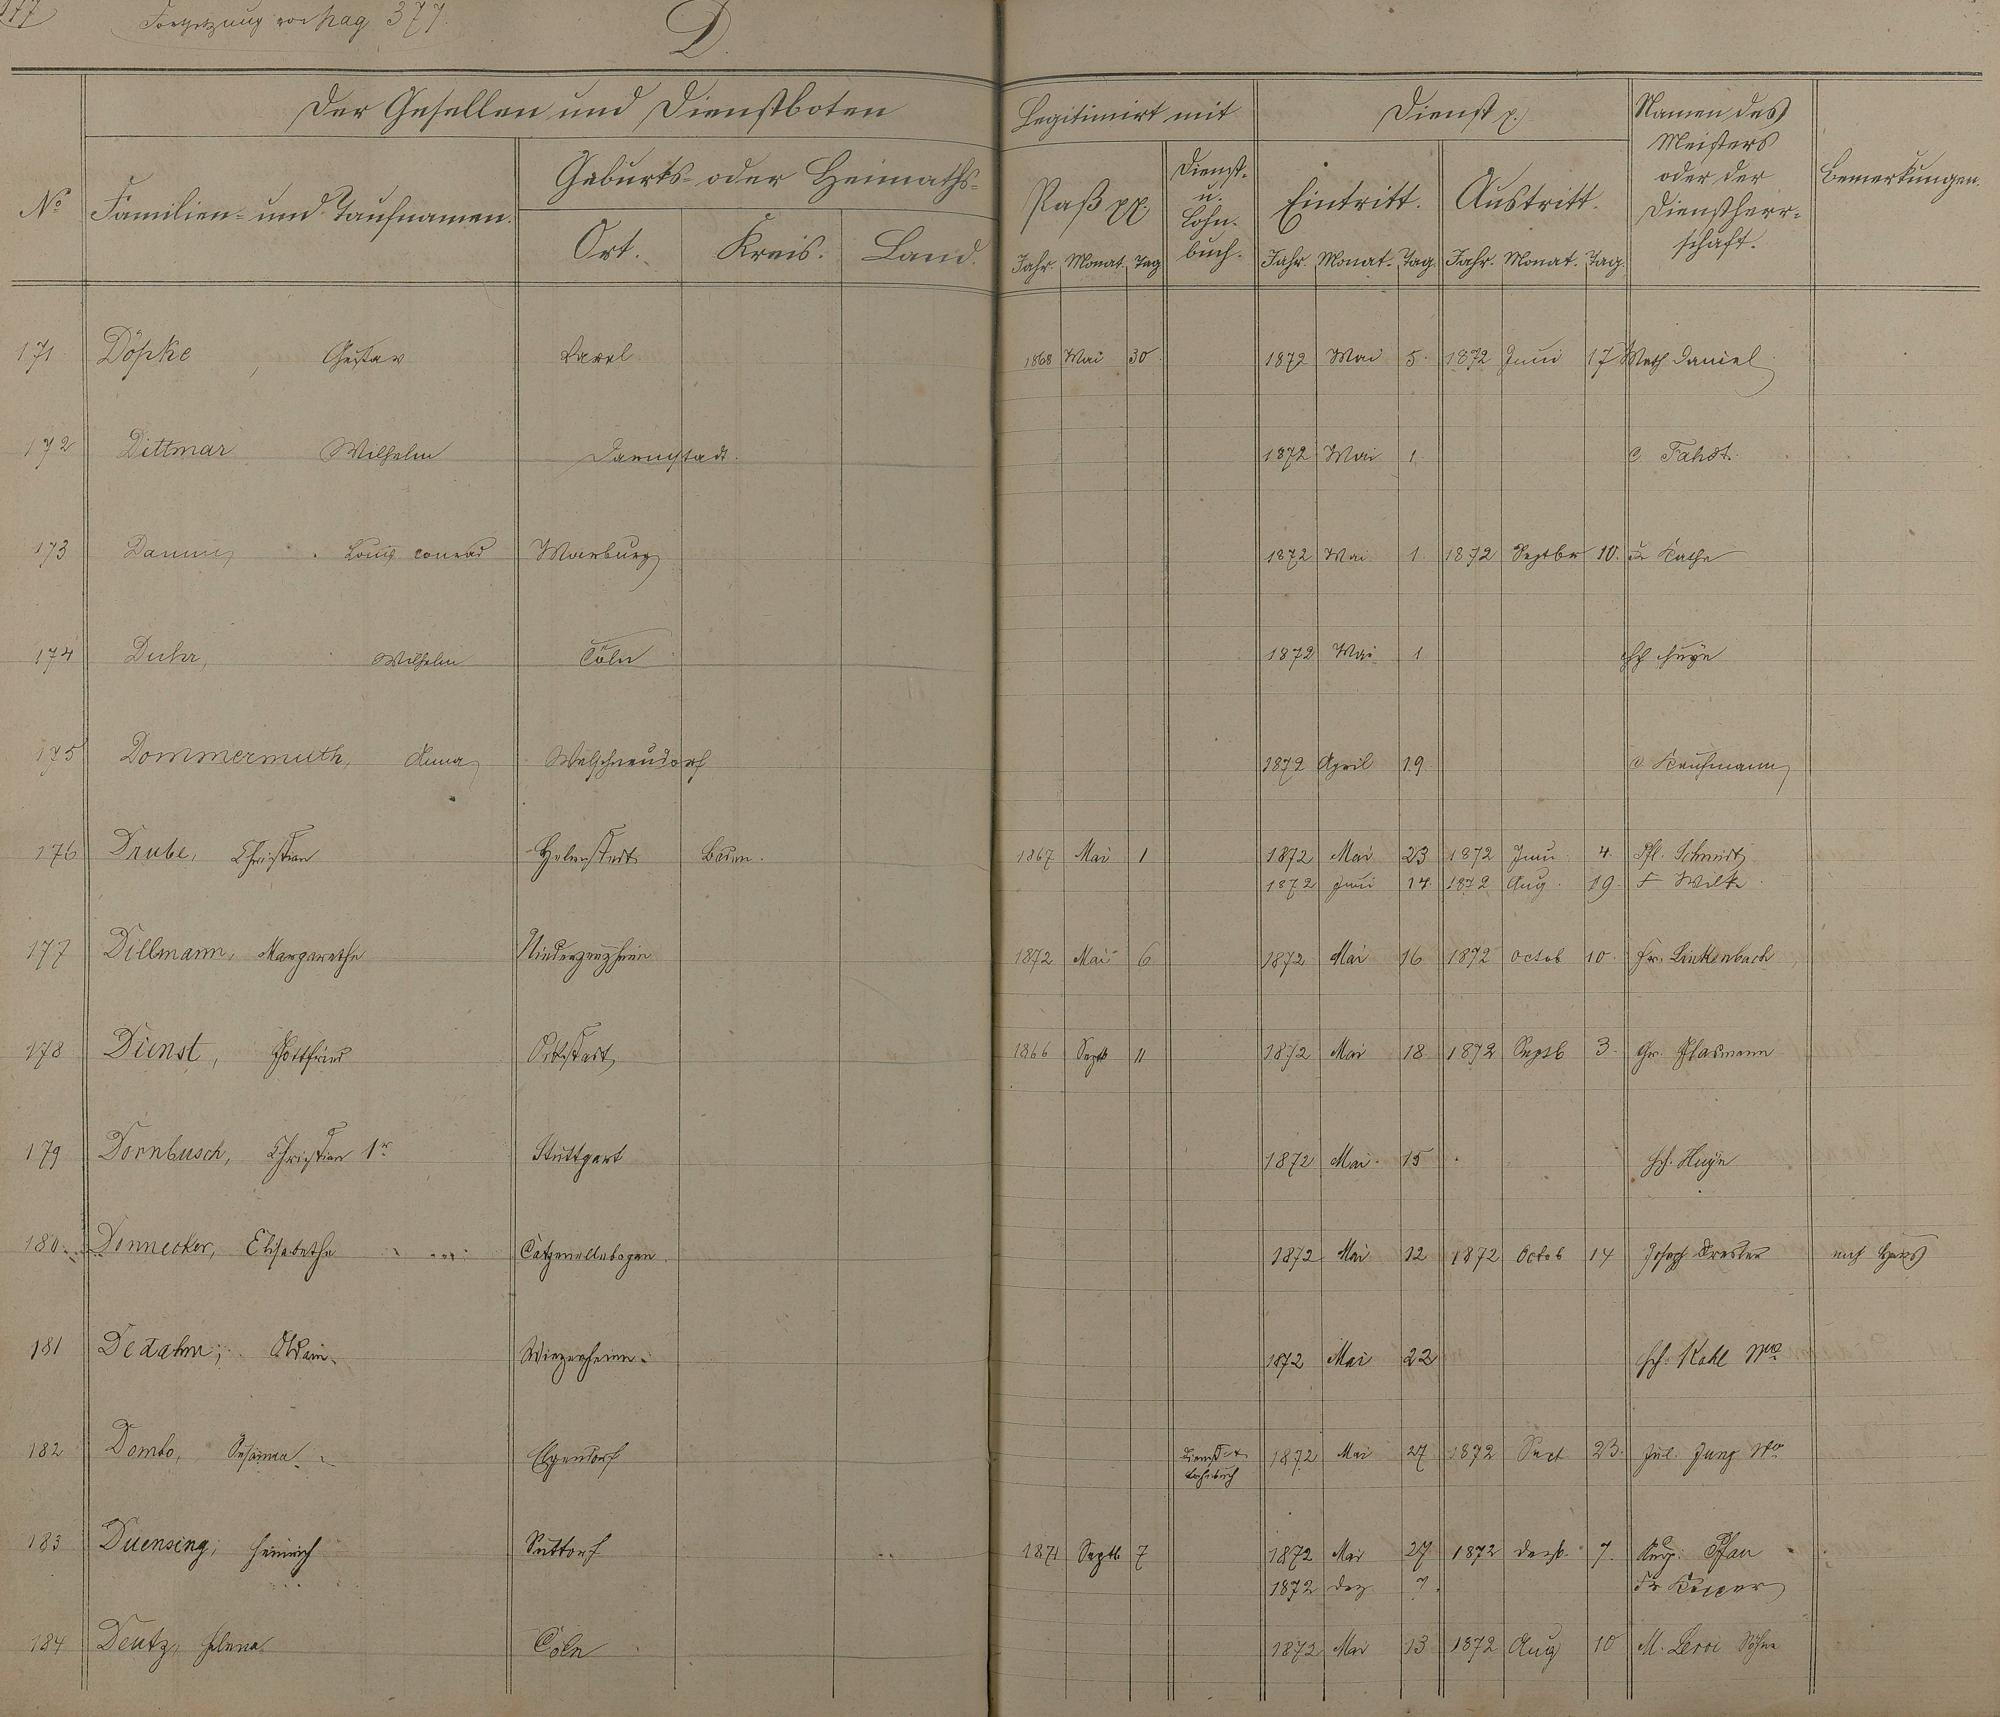 Fortsetzung von pag 377.
D.
Der Gesellen und Dienstboten
Legitimirt mit
Dienst p.
Namen des Meisters oder der Dienstherrschaft.
Bemerkungen.
No
Familien- und Taufnamen.
Geburts- oder Heimaths-
Ort. Kreis. Land.
Paß pp.
Dienst- u. Lohn-buch.
Eintritt. Austritt.
Jahr. Monat. Tag Jahr. Monat. Tag Jahr. Monat. Tag.
171 Döpke, Gustav Varel 1868 Mai 30 1872 Mai 5. 1872 Juni 17 Math Daniel
172 Dittmar Wilhelm Darmstadt. 1872 Mai 1 C Fahdt.
173 Damm, Louis Conrad Marburg 1872 Mai 1. 1872 Septbr 10. Kathe
174 Duhr, Wilhelm Cöln 1872 Mai 1
175 Dommermuth, Anna Welschneudorf 1872 April 19 C Kaufmann
176 Drube, Christian Baden. 1867 Mai 1 1872 Mai 23 1872 Juni 4. Schmidt
1872 Juni 14. 1872 Aug. 19. F Wilke
177 Dillmann, Margarethe Niederzeuzheim 1872 Mai 6 1872 Mai 16 1872 Octob 10. Fr. Linkenbach
178 Dienst, Gottfried 1866 Septb 11 1872 Mai 18 1872 Septb 3. Gr. Plasmann
179 Dornbusch, Christian 1r Stuttgart 1872 Mai. 15 Hch. Huyn
180. Donnecker, Elisabetha Catzenellnbogen. 1872 Mai 12 1872 Octob 14 Joseph
181 Wirzenheim. 1872 Mai 22 Hch. Kahl Wwe
182 Dombo, Susanna Elgendorf Dienst u Lohnbuch 1872 Mai 27 1872 Sept 23. Jul. Jung Wwe
183 Duensing, Heinrich Suttorf 1871 Septb 7 1872 Mai 27 1872 Dezb. 7. Aug. Pfau
1872 Dez 7. Fr
184 Deutz, Helena Cöln 1872 Mai 13 1872 Aug 10 M. Leroi Söhne